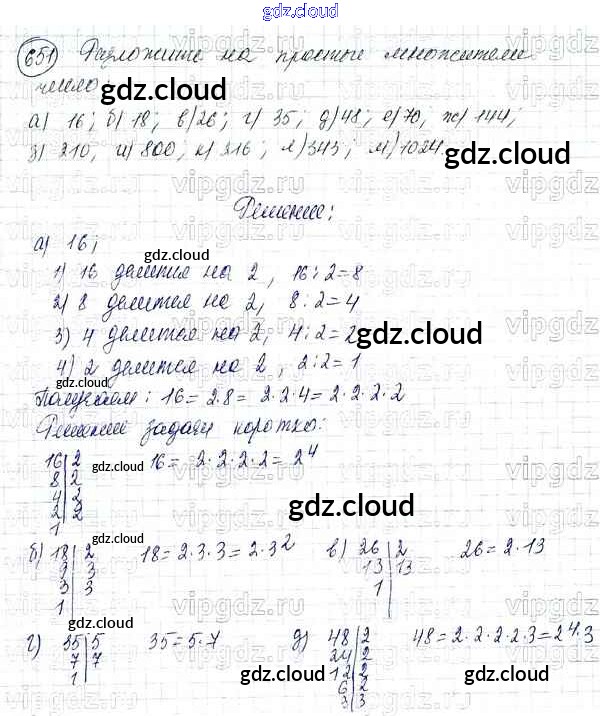 gdz.cloud
651 Разложите на простые множители
число:
gdz.cloud
а) 16; б) 18; в) 26; г) 35; д) 48; е) 70, ж) 144;
з) 210, и) 800; к) 216; л) 343; м) 1024.
gdz.cloud
Решение:
а) 16;
gdz.cloud
1) 16 делится на 2, 16:2=8
2) 8 делится на 2, 8:2=4
gdz.cloud
3) 4 делится на 2, 4:2=2
gdz.cloud
4) 2 делится на 2, 2:2=1
gdz.cloud
Получаем: 16=2·8=2·2·4=2·2·2·2
Решение задачи коротко:
16|2 16=2·2·2·2=2⁴
8|2 gdz.cloud
4|2
2|2 gdz.cloud
1|
б) 18|2 18=2·3·3=2·3² в) 26|2 26=2·13
9|3 13|13
3|3 1|
gdz.cloud
1|
gdz.cloud
г) 35|5 35=5·7 д) 48|2 48=2·2·2·2·3=2⁴·3
7|7 24|2
1| 12|2
gdz.cloud gdz.cloud
6|2
3|3
vipgdz.ru